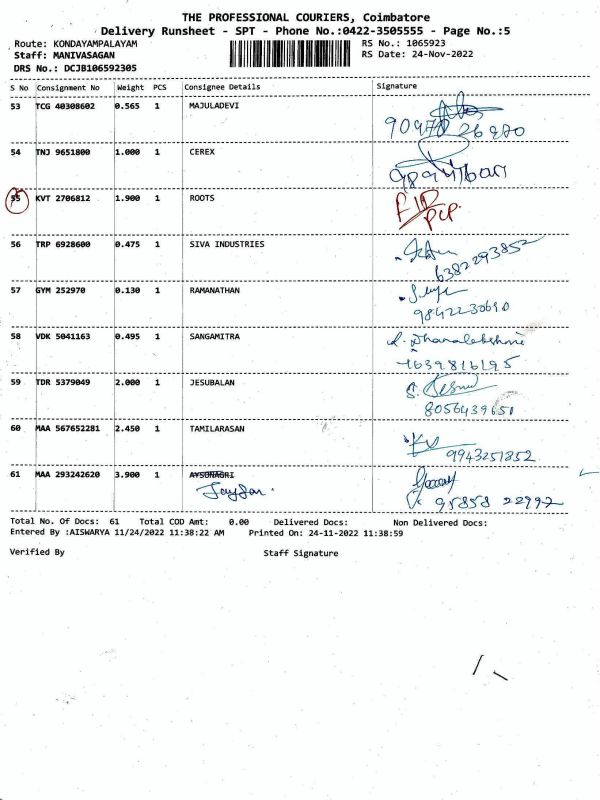 THE PROFESSIONAL COURIERS, Coimbatore
Delivery Runsheet - SPT - Phone No.:0422-3505555 - Page No.:5
Route: KONDAYAMPALAYAM
RS No.: 1065923
Staff: MANIVASAGAN
RS Date: 24-Nov-2022
DRS No.: DCJB106592305
S No Consignment No Weight PCS Consignee Details Signature
53 TCG 40308602 0.565 1 MAJULADEVI
54 TNJ 9651800 1.000 1 CEREX
55 KVT 2706812 1.900 1 ROOTS
56 TRP 6928600 0.475 1 SIVA INDUSTRIES
6382293852
57 GYM 252970 0.130 1 RAMANATHAN
9842230690
58 VDK 5041163 0.495 1 SANGAMITRA
R. Dhanalakshmi
7639816195
59 TDR 5379049 2.000 1 JESUBALAN
8056439651
60 MAA 567652281 2.450 1 TAMILARASAN
9943251852
61 MAA 293242620 3.900 1 AYSONAGRI
95858 22992
Total No. Of Docs: 61 Total COD Amt: 0.00 Delivered Docs: Non Delivered Docs:
Entered By :AISWARYA 11/24/2022 11:38:22 AM Printed On: 24-11-2022 11:38:59
Verified By Staff Signature